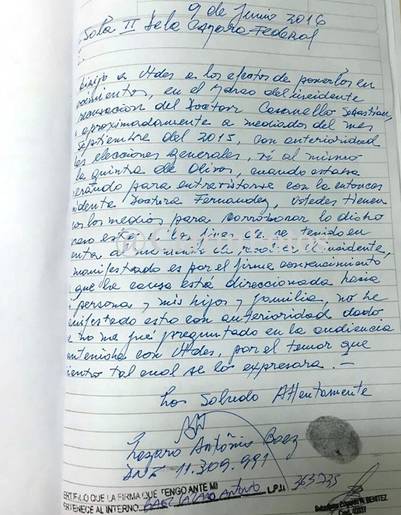 9 de Junio 2016
Sala II de la Camara Federal
dirijo a Uds a los efectos de ponerlos en
en el Marco del incidente
recusacion del Doctor Casanello Sebastian,
aproximadamente a mediados del mes
septiembre del 2015, con anterioridad
las elecciones generales, vi al mismo
la quinta de Olivos, cuando estaba
esperando para entrevistarme con la entonces
sidenta Doctora Fernandez, ustedes tienen
los medios para corroborar lo dicho
a los fines de ser tenido en
enta al momento de resolver el incidente,
manifestado es por el firme convencimiento
que la causa está direccionada hacia
persona y mis hijos y familia, no he
nifestado esto con anterioridad dado
e no me fue preguntado en la audiencia
antenida con Uds, por el temor que
siento tal cual se los expresara. -
Los Saludo Attentamente
Lazaro Antonio Baez
DNI 11.309.991
CERTIFICO QUE LA FIRMA QUE TENGO ANTE MI
PERTENECE AL INTERNO: BAEZ Lazaro Antonio L.P.U. 363735
BENITEZ